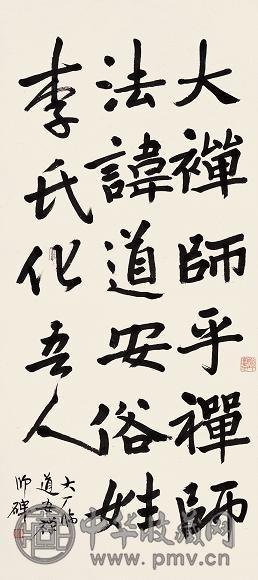 大禪師乎禪師
法諱道安俗姓
李氏化吾人
大厂临
道安禅
师碑
中华收藏网
www.pmv.cn